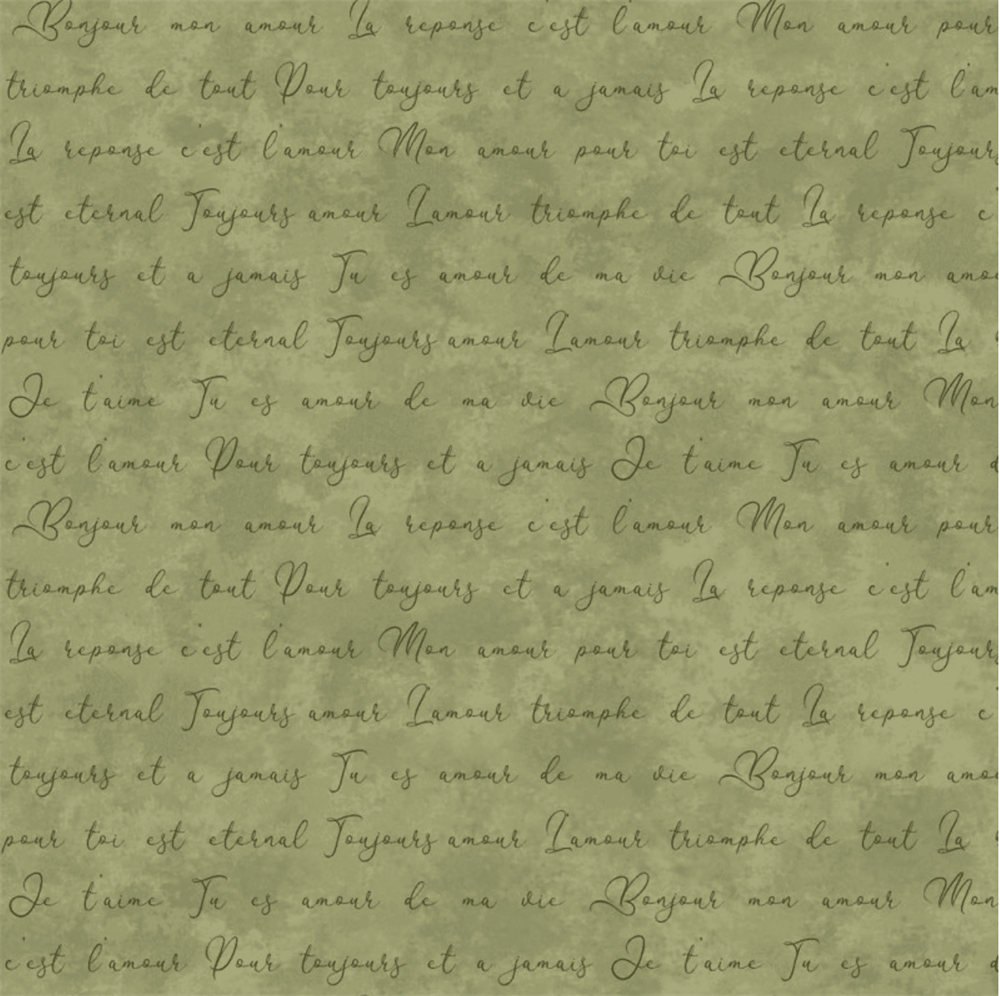 Bonjour mon amour La reponse c'est l'amour Mon amour pour
triomphe de tout Pour toujours et a jamais La reponse c'est l'am
La reponse c'est l'amour Mon amour pour toi est eternal Toujours
est eternal Toujours amour L'amour triomphe de tout La reponse c'
toujours et a jamais Tu es amour de ma vie Bonjour mon amo
pour toi est eternal Toujours amour L'amour triomphe de tout La
Je t'aime Tu es amour de ma vie Bonjour mon amour Mon
c'est l'amour Pour toujours et a jamais Je t'aime Tu es amour d
Bonjour mon amour La reponse c'est l'amour Mon amour pour
triomphe de tout Pour toujours et a jamais La reponse c'est l'am
La reponse c'est l'amour Mon amour pour toi est eternal Toujours
est eternal Toujours amour L'amour triomphe de tout La reponse c
toujours et a jamais Tu es amour de ma vie Bonjour mon amo
pour toi est eternal Toujours amour L'amour triomphe de tout La
Je t'aime Tu es amour de ma vie Bonjour mon amour Mon
c'est l'amour Pour toujours et a jamais Je t'aime Tu es amour d